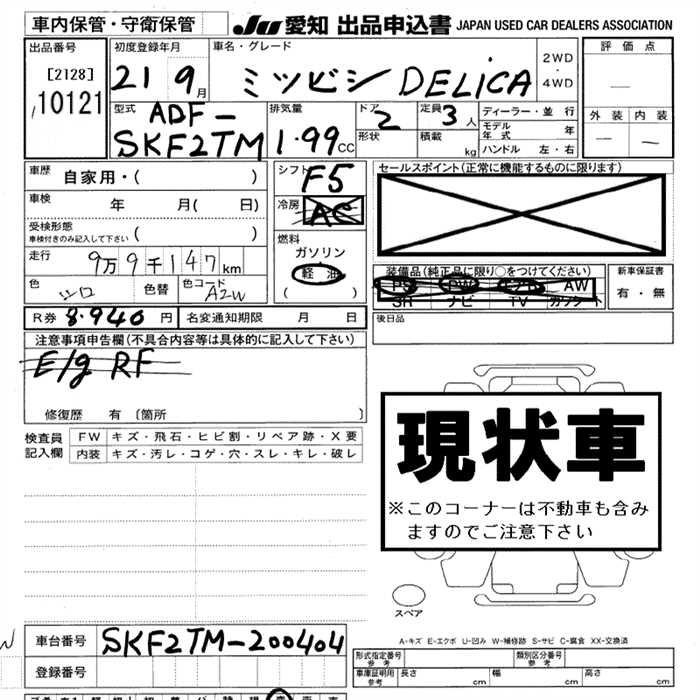 車内保管・守衛保管
JU 愛知 出品申込書 JAPAN USED CAR DEALERS ASSOCIATION
出品番号 初度登録年月 車名・グレード 評価点
[2128] 21 9月 ミツビシ DELiCA 2WD・4WD
10121
型式 排気量 ドア 定員 ディーラー・並行 外装 内装
ADF-SKF2TM 1.99CC 2 3人 モデル年式 年
形状 積載 kg ハンドル 左・右
車歴 自家用・( ) シフト F5 セールスポイント(正常に機能するものに限ります)
車検 年 月( 日) 冷房 AC
受検形態 車検付きのみ記入して下さい ( ) 燃料 ガソリン
走行 9万9千147km 軽油
色 シロ 色替 色コード A2W ( )
装備品(純正品に限り○をつけてください) 新車保証書
PS PW エアB AW 有・無
SR ナビ TV カワシート
R券 8.940円 名変通知期限 月 日 後日品
注意事項申告欄(不具合内容等は具体的に記入して下さい)
E/g RF
修復歴 有 〔箇所 〕
検査員記入欄 FW キズ・飛石・ヒビ割・リペア跡・X要
内装 キズ・汚レ・コゲ・穴・スレ・キレ・破レ
現状車
※このコーナーは不動車も含み
ますのでご注意下さい
スペア
A-キズ E-エクボ U-凹み W-補修跡 S-サビ C-腐食 XX-交換済
車台番号 SKF2TM-200404
登録番号
形式指定番号 参考 類別区分番号 参考
車庫証明用 参考 長さ cm 幅 cm 高さ cm